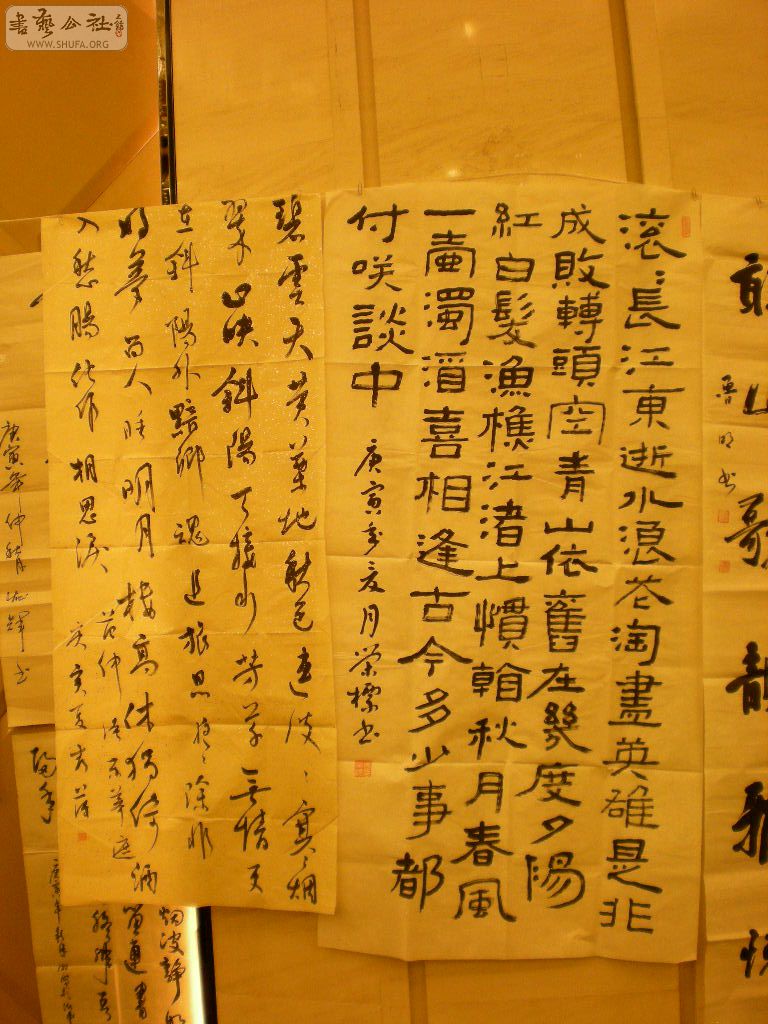 書藝公社
WWW.SHUFA.ORG
滚〻長江東逝水浪花淘盡英雄是非
成敗轉頭空青山依舊在幾度夕陽
紅白髮漁樵江渚上慣看秋月春風
一壺濁酒喜相逢古今多少事都
付咲談中
庚寅年夏月荣標书
碧雲天黄葉地秋色連波〻寒〻烟
翠山映斜陽天接水芳草無情更
在斜陽外黯鄉魂追旅思夜〻除非
好夢留人睡明月樓高休獨倚酒
入愁腸化作相思淚
范仲淹苏幕遮
庚寅夏
山歌韻雅
鲁明书
庚寅年仲秋
烟波静